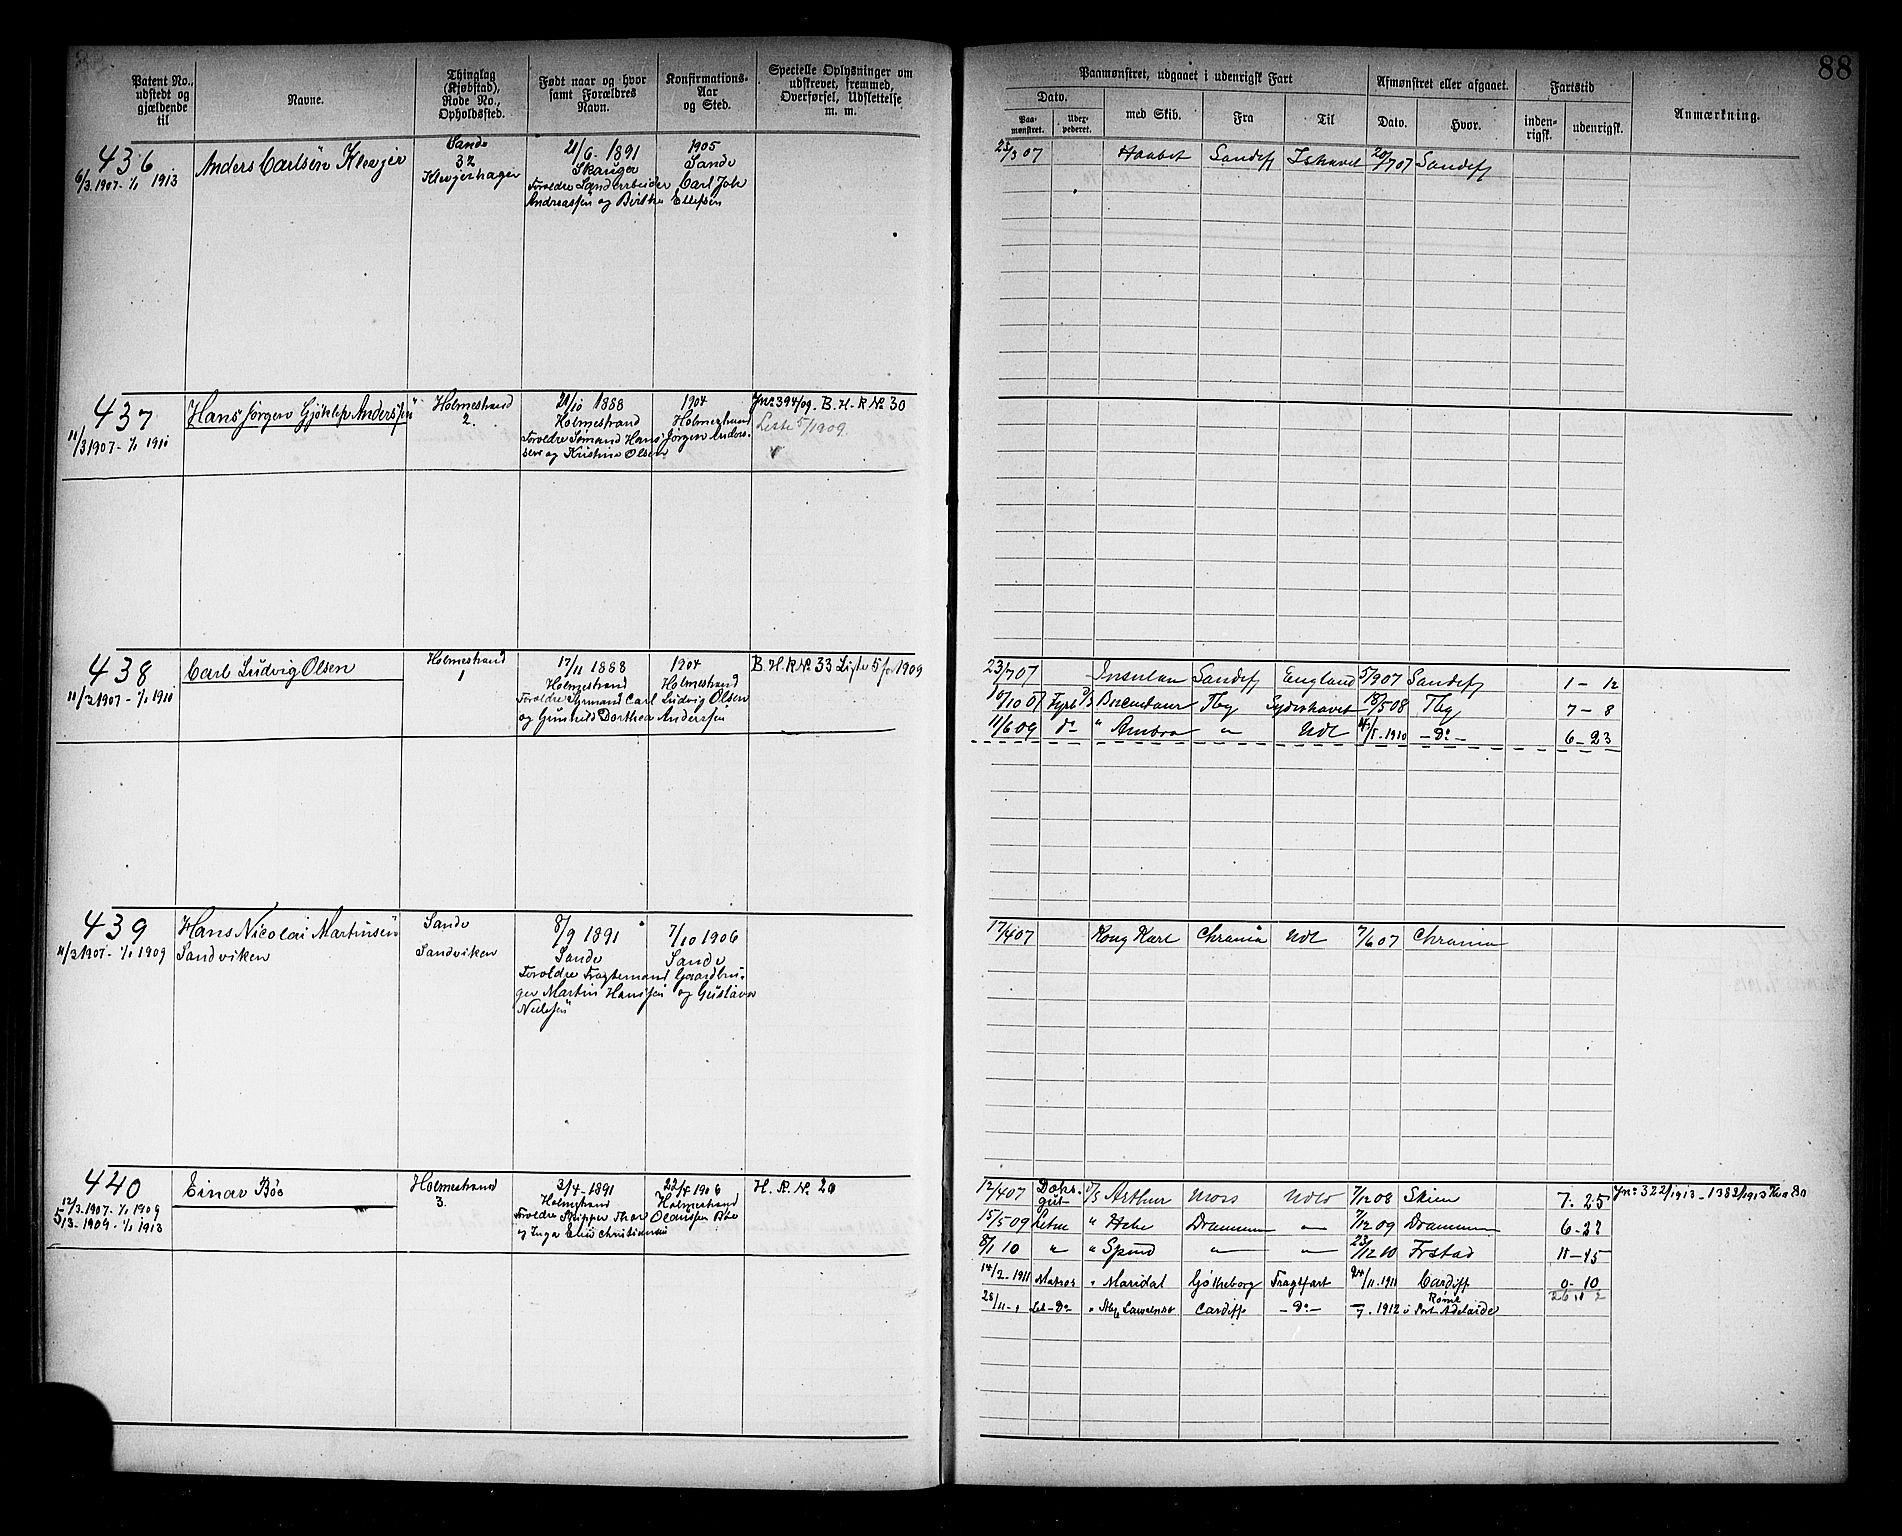 88
Patent No., udstedt og gjældende til
Navne.
Thinglag (Kjøbstad), Rode No., Opholdssted.
Født naar og hvor samt Forældres Navn.
Konfirmations-Aar og Sted.
Specielle Oplysninger om udstrevet, fremmed, Overførsel, Udslettelse m. m.
Paamønstret, udgaaet i udenrigsk Fart
Afmønstret eller afgaaet.
Fartstid
Anmærkning.
Dato.
med Skib.
Fra
Til
Dato.
Hvor.
inden-rigsk.
udenrigsk.
Paa-mønstret.
436
6/3.1907 - 1/1 1913
Anders Carlsen Klevjer
Sande
32
Klevjerhagen
21/6 - 1891
Skauga
Foreldre Landarbeider Carl Joh
Andreassen og Berthe Ellefsen
1905
Sande
25/3 07 Haabet Sandefj Ishavet 20/7 07 Sandefj
437
11/3 1907 - 1/1 1910
Hans Jørgen Anderssen
Holmestrand
2.
21/10 1888
Holmestrand
Foreldre Sømand Hans Jørgen Anders-
sen og Kristine Olsen
1904
Holmestrand
Jnº 394/09. B. H. R № 30
Liste 5/1909.
438
11/3 1907 - 1/1 1910
Carl Ludvig Olsen
Holmestrand
1
17/11 1888
Holmestrand
Foreldre Sømand Carl Ludvig Olsen
og Gunhild Dorthea Anderssen
1904
Holmestrand
B. H. R № 33 Liste 5 for 1909
23/7 07 Sandefj England 5/9 07 Sandefj 1 - 12
10/10 07 Fyrb Tbg Sydishavet 18/5 08 Tbg 7 - 8
11/6 09 do " Ambra " Udl 1910 - Do - 6 - 23
439
11/3 1907 - 1/1 1909
Hans Nicolai Martinsen
Sandviken
Sande
Sandviken
8/9 1891
Sande
Foreldre Fragtemand Gaardbru-
ger Martin Hanssen og Gustava
Nielsen
7/10 1906
Sande
17/4 07 Kong Karl Chrania Udl 7/6 07 Chrania
440
12/3.1907 - 1/1 1909
5/3 - 1909 - 1/1 1913
Einar Bøe
Holmestrand
3.
3/4 - 1891
Holmestrand
Foreldre Skipper Thor Olaussen Bøe
og Inga Elise Christiansen
22/4 1906
Holmestrand
H. R. № 20
12/4 07 Dæks-gut D/S Arthur Moss Udl 7/12 08 Skien 7. 25 Jnº 322/1913 - 1382/1913
15/5 09 Letm " Hebe Drammen " 7/12 09 Drammen 6 - 22
8/1 10 " " Spind " " 23/12 10 Frstad 11 - 15
14/2 - 1911 Matros " Maridal Gøtheborg Fragtfart 24/11 . 1911 Cardiff 0 - 10
Lawrence Cardiff - Do - 1912 Rømt i Port Adelaide